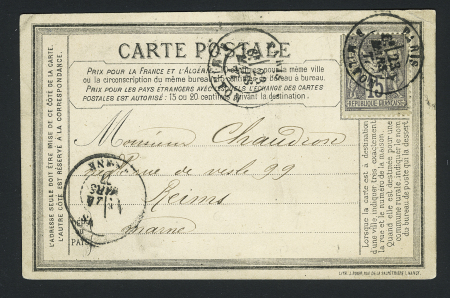 CARTE POSTALE
PRIX POUR LA FRANCE ET L'ALGÉRIE
la même ville
ou la circonscription du même bureau
de bureau à bureau.
PRIX POUR LES PAYS ÉTRANGERS AVEC LESQUELS L'ÉCHANGE DES CARTES
POSTALES EST AUTORISÉ : 15 ou 20 centimes suivant la destination.
L'ADRESSE SEULE DOIT ÊTRE MISE DE CE CÔTÉ DE LA CARTE.
L'AUTRE CÔTÉ EST RÉSERVÉ À LA CORRESPONDANCE.
Monsieur Chaudron
de vesle 99
Reims
marne
PARIS
15
RÉPUBLIQUE FRANÇAISE
MARS
PAYS
Lorsque la carte est à destination
d'une ville, indiquer très exactement
la rue et le numéro de la maison.
Quand elle est destinée pour une
commune rurale, indiquer le nom
du bureau de poste qui la dessert.